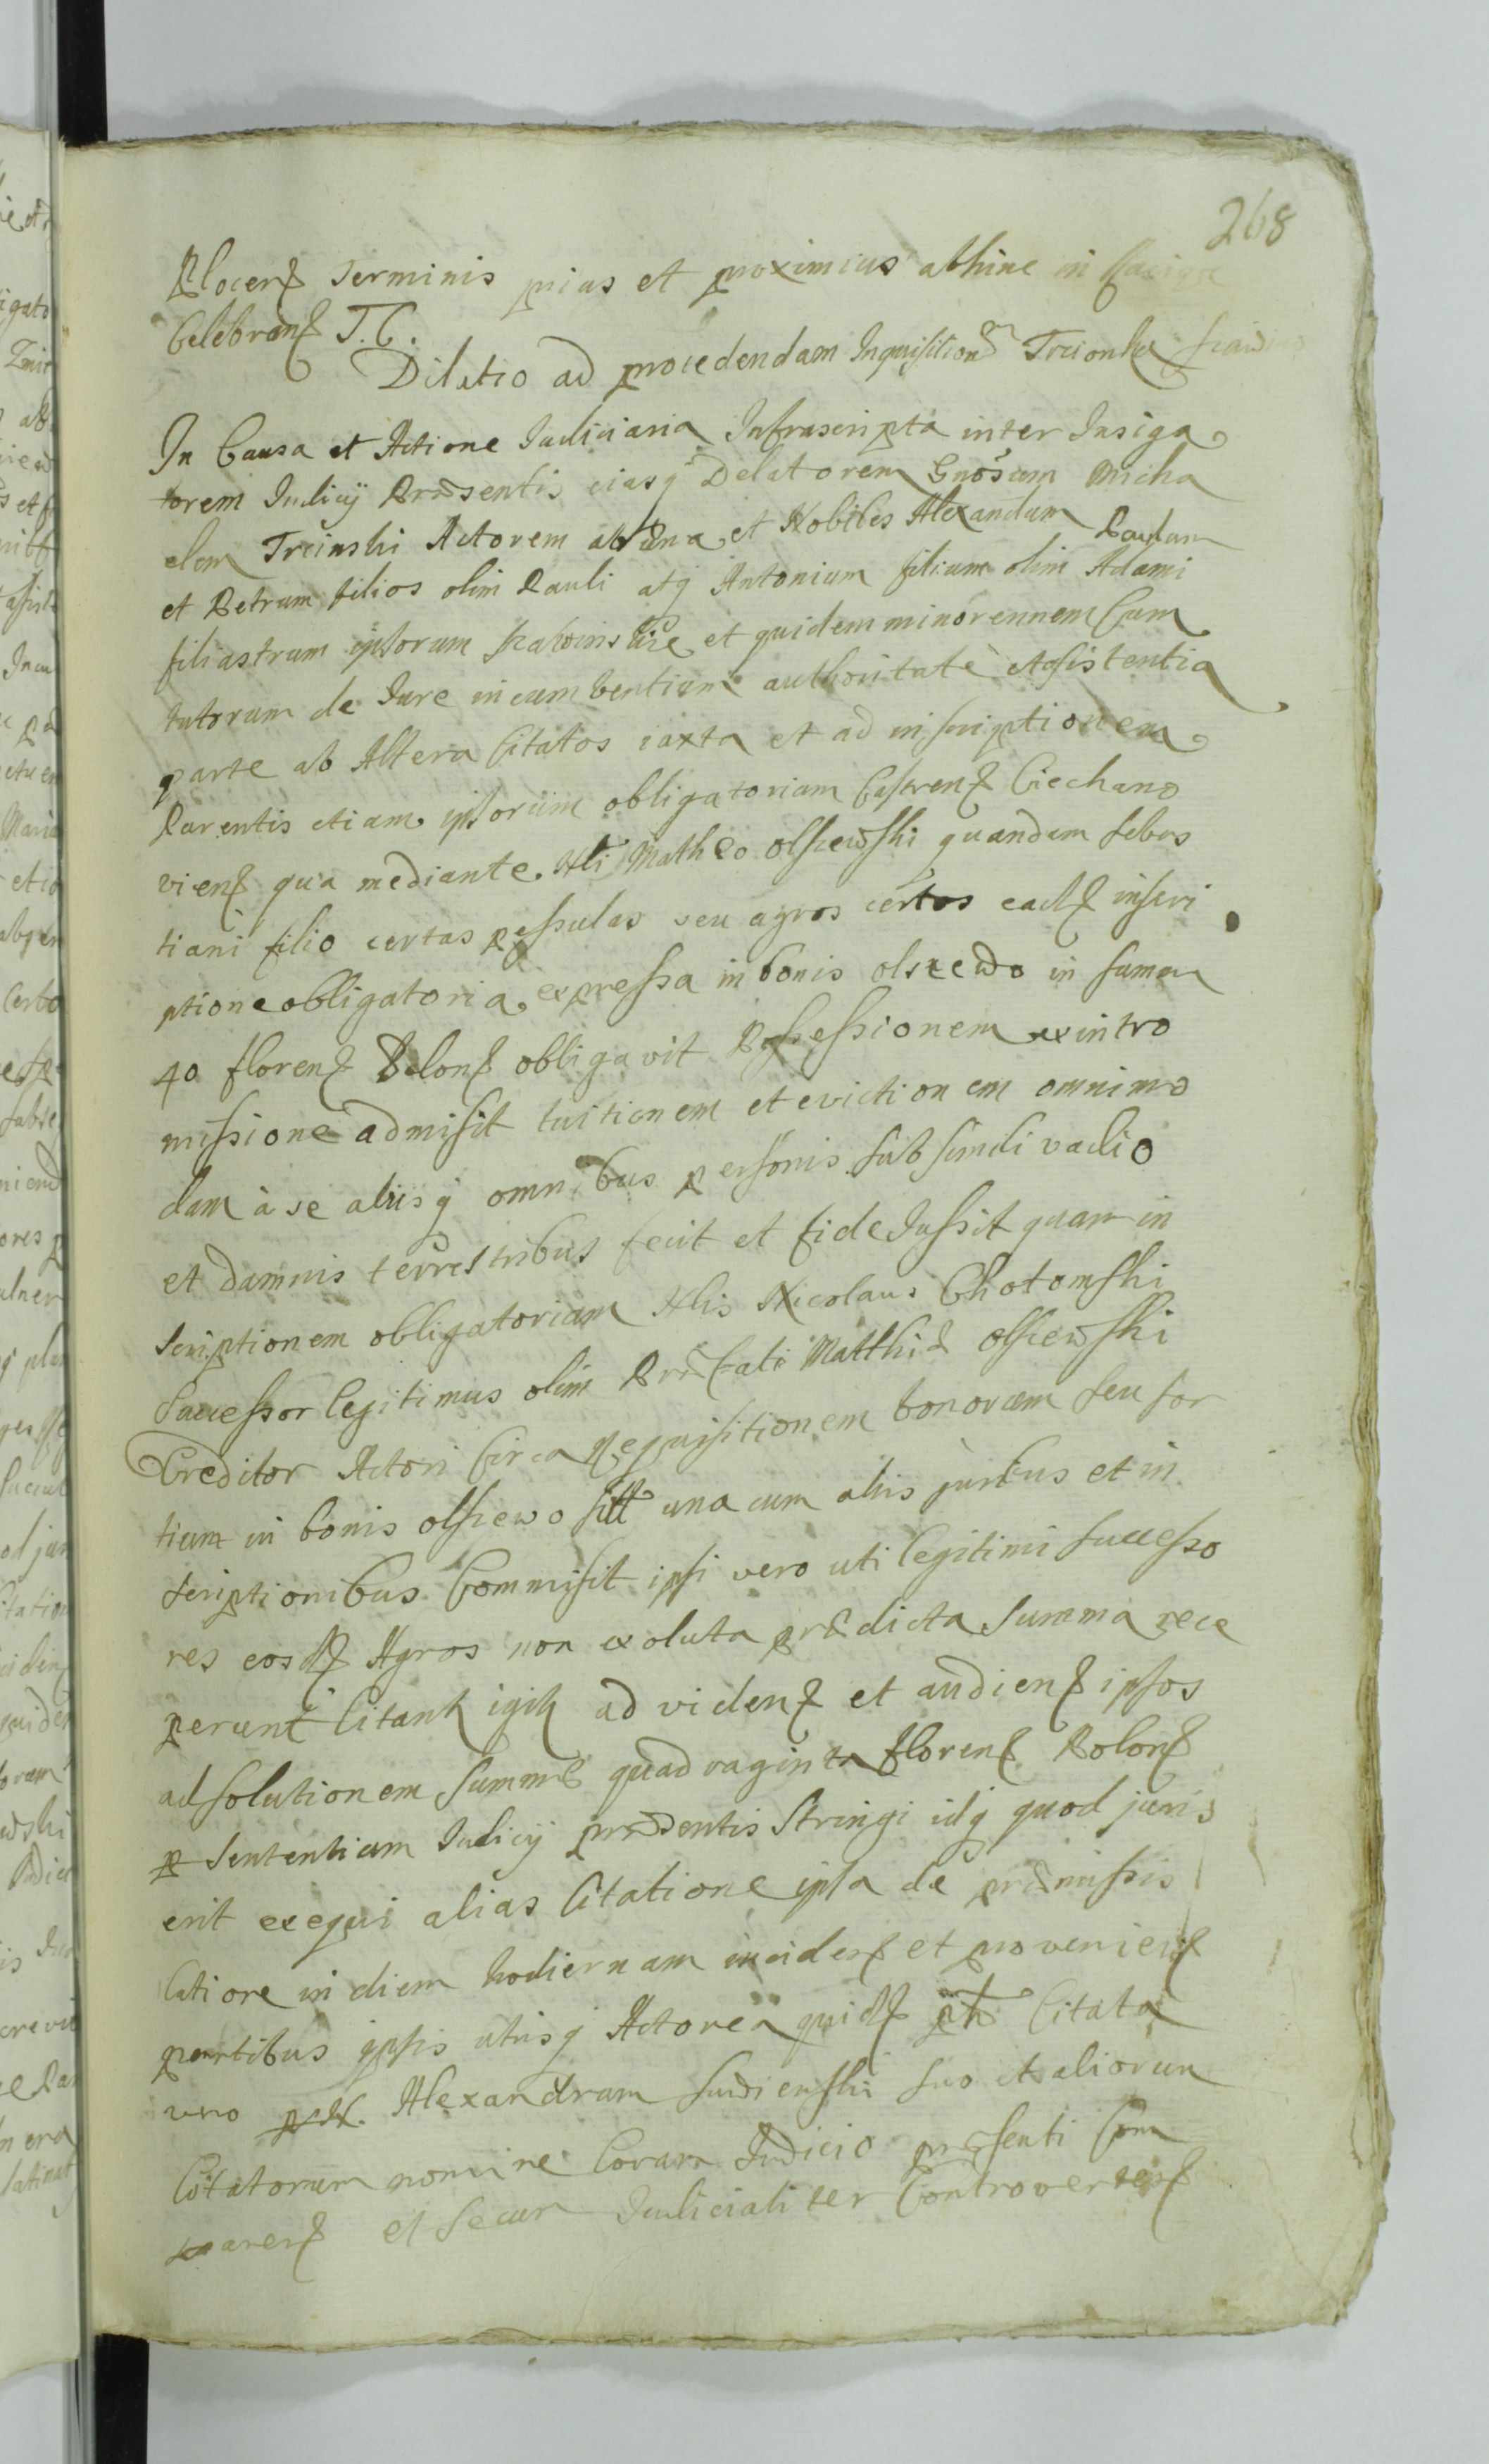 268
Plocen Terminis prius et proximius abhinc in
Celebran T. C.
Dilatio ad procedendam Inquisitionem
In Causa et Actione Iudiciaria Infrascripta inter Insiga
torem Iudicÿ Præsentis eiusq Delatorem Gnosum Micha
elem Trcinski Actorem ab una et Nobiles Alexandum Paulum
et Petrum filios olim Pauli atq Antonium filium olim Adami
filiastrum ipsorum et quidem minorennem Cum
tutorum de Iure incumbentium authoritate Assistentia
parte ab Altera Citatos iuxta et ad inscriptionem
Parentis etiam ipsorum obligatoriam Castren Ciechano
vien qua mediante Nli Mathæo olszewski quondam Sebas
tiani filio certas pessulas seu agros certos ead inscri
ptione obligatoria expressa in bonis olszewo in summa
40 floren Polon obligavit Possessionem ex intro
missione admisit tuitionem et evictionem omnimo
dam à se aliisq omnibus personis sub simili vadio
et damnis terrestribus fecit et fide Iussit quam in
scriptionem obligatoriam Nlis Nicolaus Chotomski
Successor legitimus olim Præfati Matthiæ olszewski
Creditor Actori Circa Requisitionem bonorum seu sor
tium in bonis olszewo sitt una cum aliis juribus et in
scriptionibus Commisit ipsi vero uti legitimi Successo
res eosd Agros non exoluta prædicta Summa rece
perunt Citant igit ad viden et audien ipsos
ad solutionem summæ quadraginta floren Polon
p Sententiam Iudicÿ præsentis Stringi idq quod juris
erit exequi alias Citatione ipsa de præmissis
latiore in diem hodiernam inciden et provenien
partibus ipsis utrisq Actorea quid Citata
vero Alexandrum suo et aliorum
Citatorum nomine Coram Iudicio præsenti Com
paren et Secum Iudicialiter Controverten